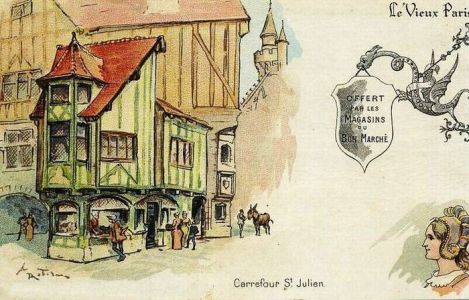 Le Vieux Paris
OFFERT
PAR LES
MAGASINS
DU
BON MARCHÉ
Carrefour St Julien.